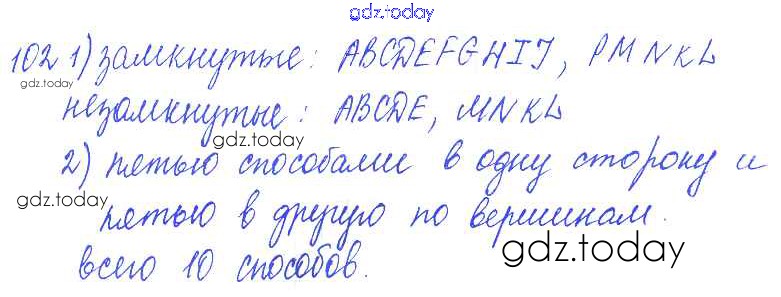 gdz.today
102 1) замкнутые: ABCDEFGHIJ, PMNKL
gdz.today
незамкнутые: ABCDE, MNKL
gdz.today
2) пятью способами в одну сторону и
gdz.today
пятью в другую по вершинам.
gdz.today
всего 10 способов.